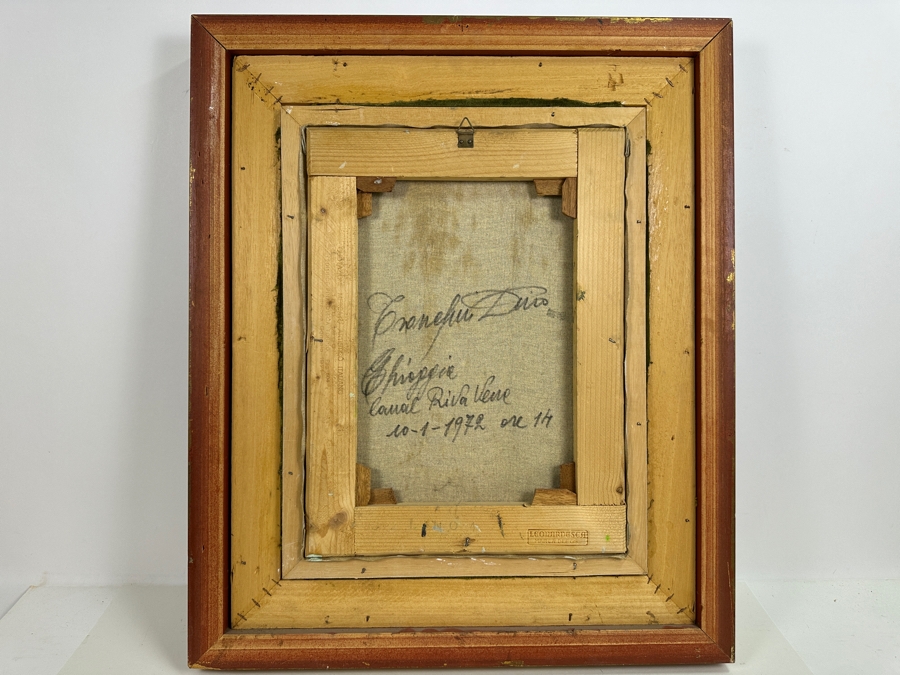 Tranchin Dino
Chioggia
Canal Riva Vena
10-1-1972 ore 14
LEONARDESCA